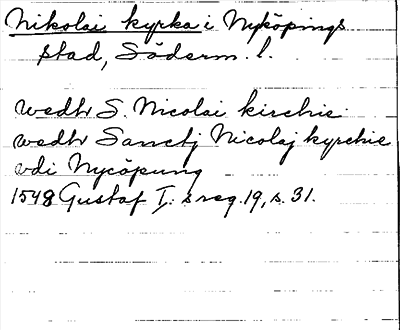 Nikolai kyrka i Nyköpings
stad, Söderm. l.
wedh S. Nicolai kirchie
wedh Sanctj Nicolaj kyrchie
vdi Nycöpung
1548 Gustaf I:s reg. 19, s. 31.